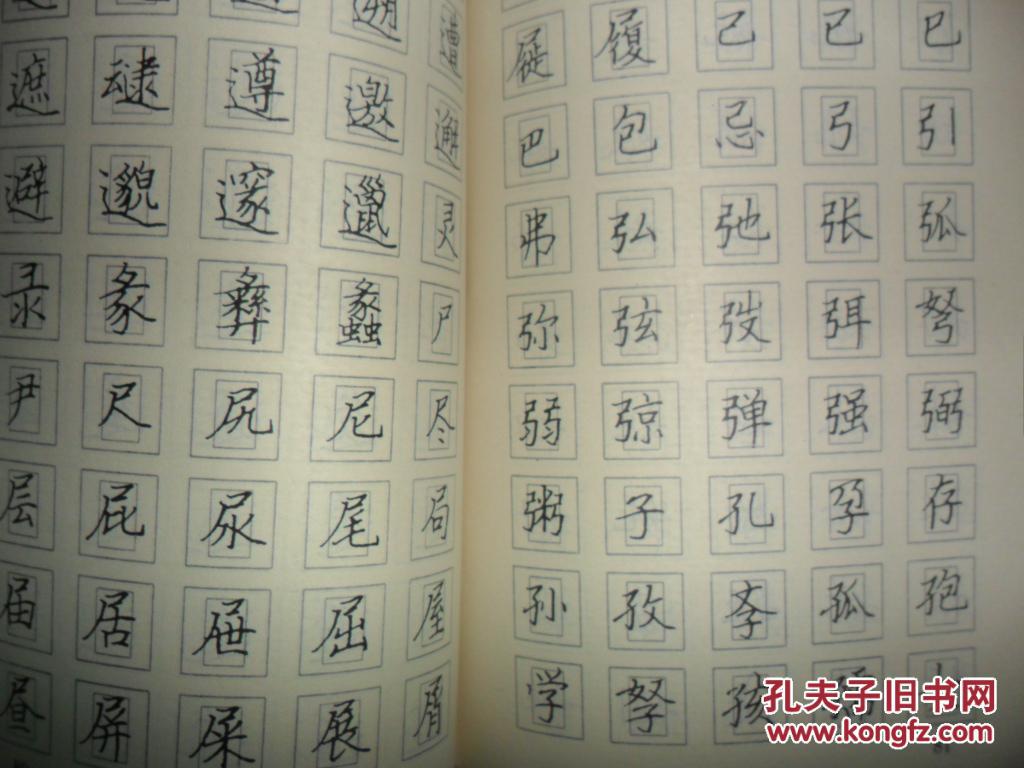 遮 逮 遵 邀 邂
避 邈 邃 邋 灵
录 彖 彝 蠡 尸
尹 尺 尻 尼 尽
层 屁 尿 尾 局
届 居 屉 屈 屋
昼 屏 屎 展 屑
屣 履 己 已 巳
巴 包 忌 弓 引
弗 弘 弛 张 弧
弥 弦 弢 弭 弩
弱 弶 弹 强 弼
粥 子 孔 孕 存
孙 孜 孪 孤 孢
学 孥 孩
孔夫子旧书网
www.kongfz.com